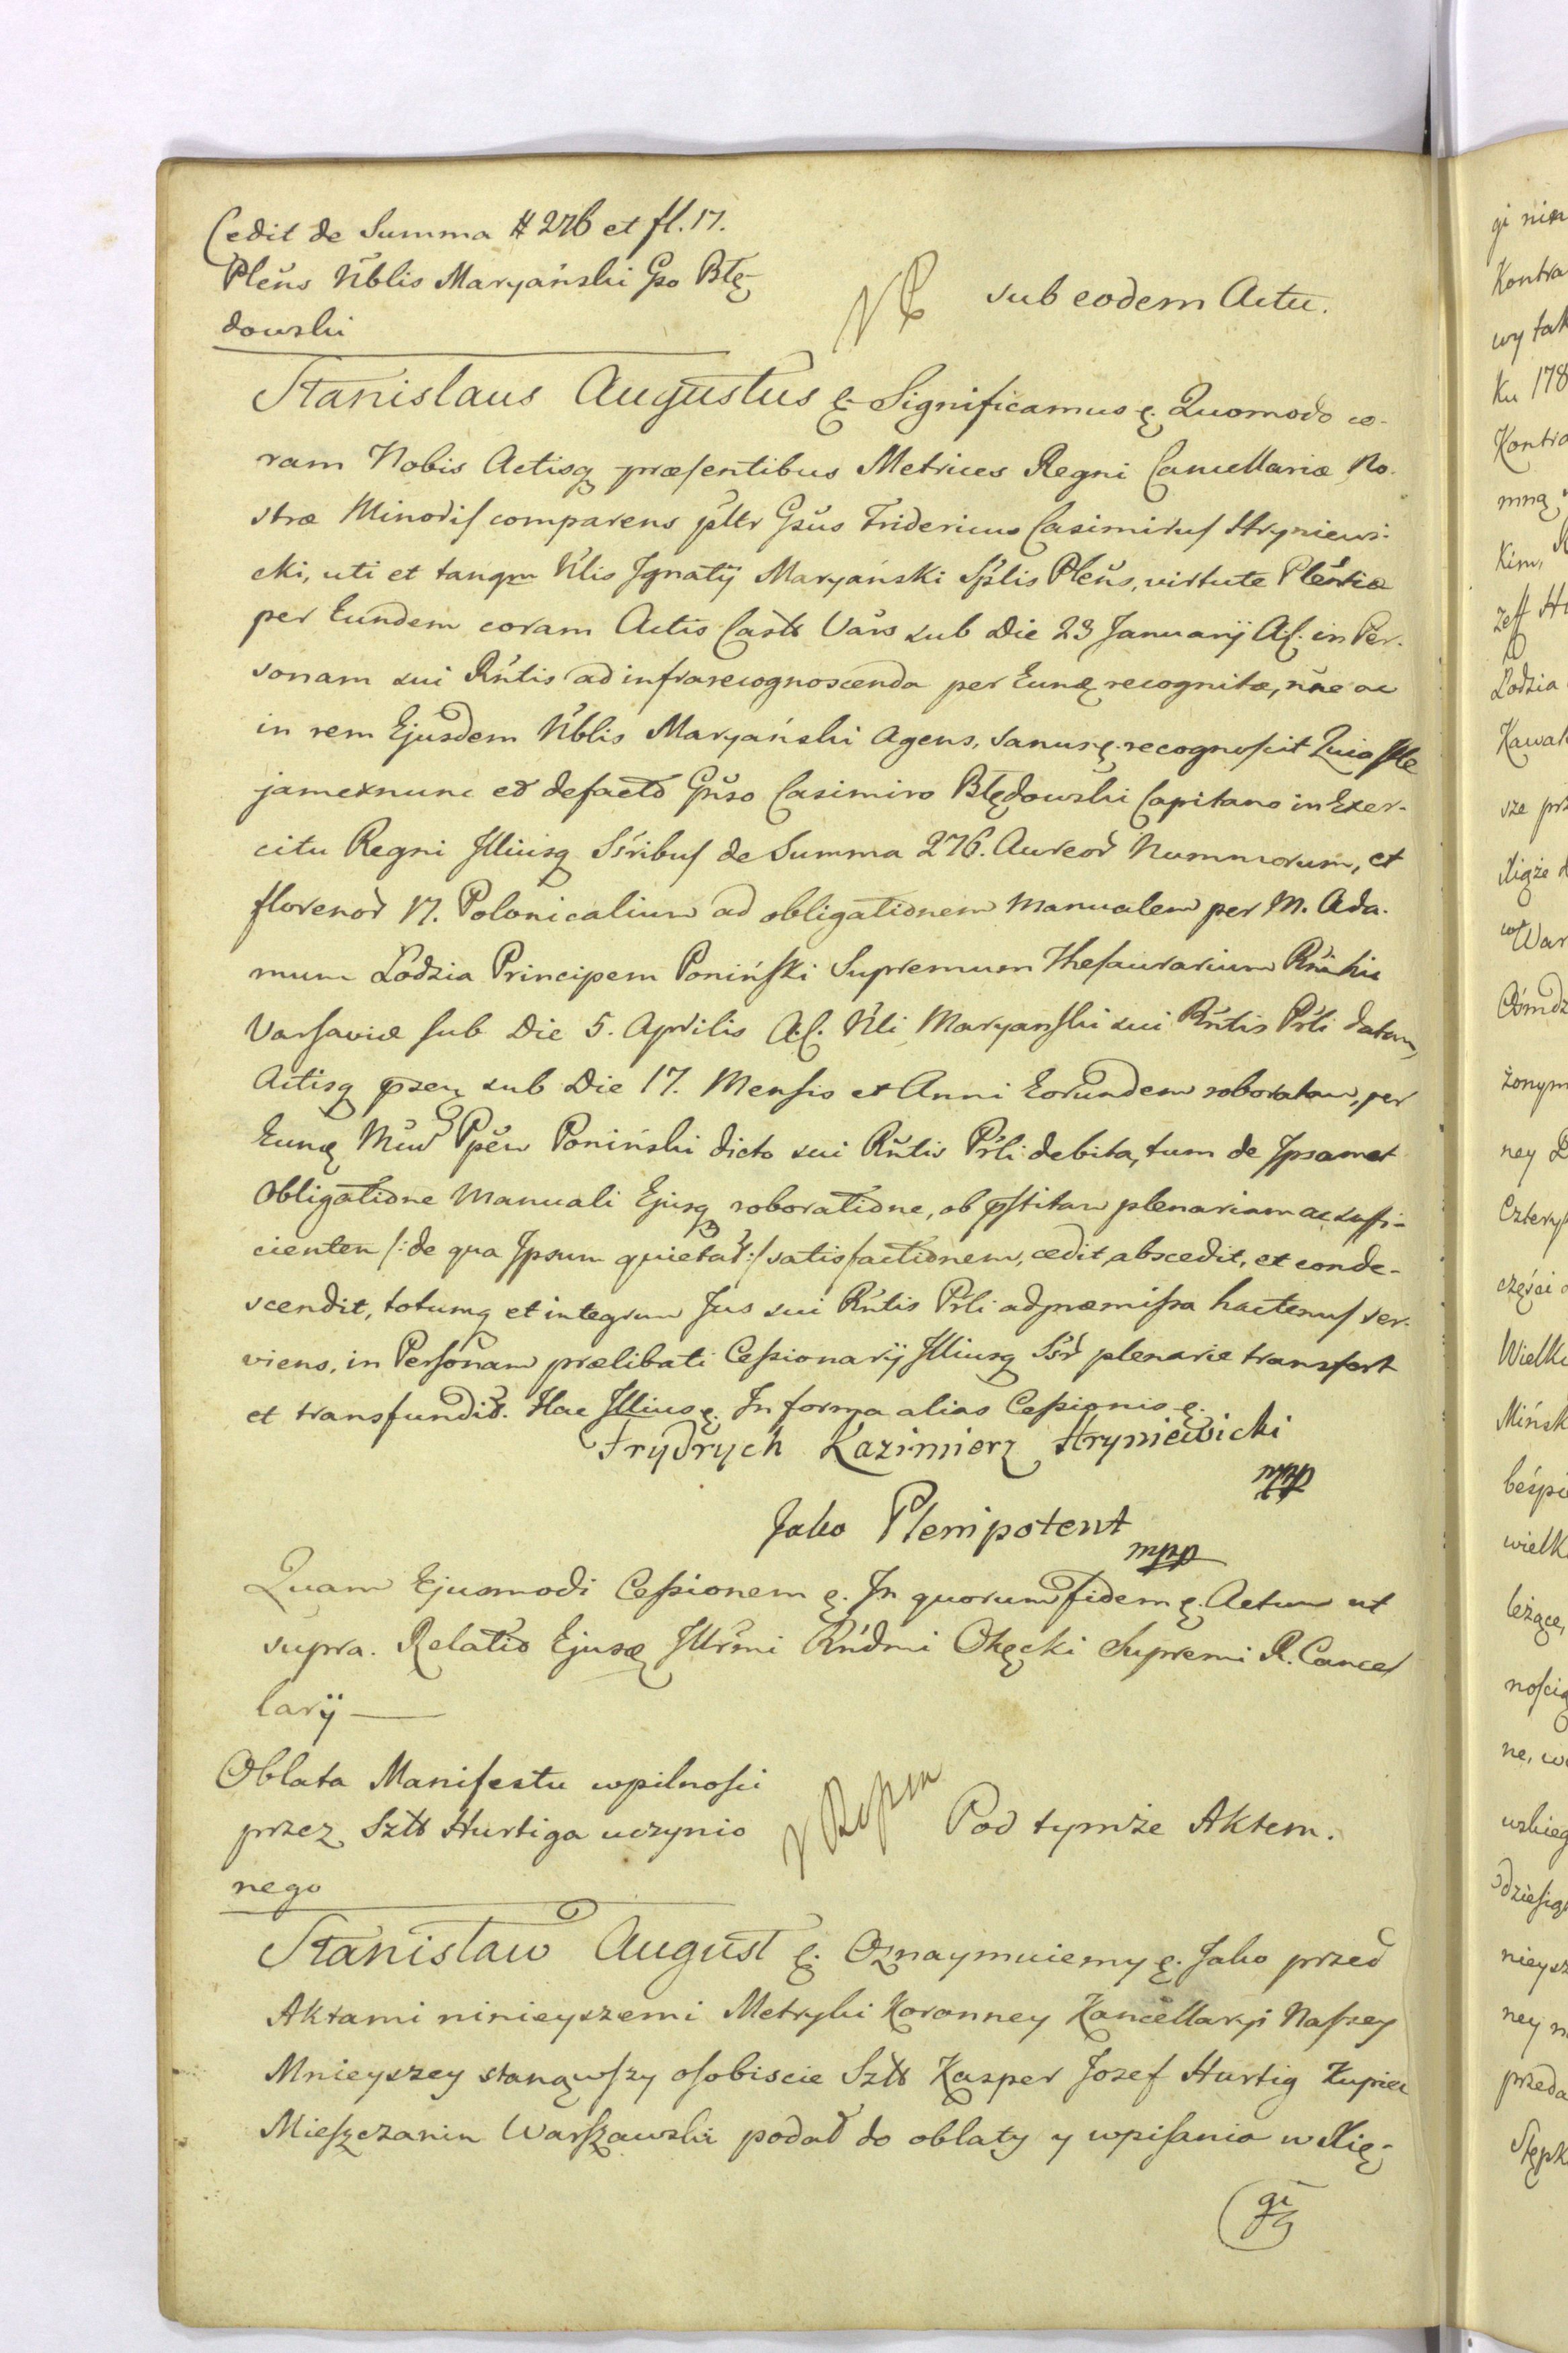 Cedit de Summa # 276 et fl. 17.
Pleñs Nblis Maryański Gso Błę-
dowski
sub eodem Actu.
Stanislaus Augustus &. Significamus &. Quomodo co-
ram Nobis Actisq præsentibus Metrices Regni Cancellariæ No-
stræ Minoris comparens pltr Gsus Fridericus Casimirus Hryniewi-
cki, uti et tanqm Nlis Jgnatij Maryański Splis Pleñs, virtute Pleñtiæ
per Eundem coram Actis Castr Vars sub Die 23 Januarij A.C. in Per-
sonam sui Rntis ad infrarecognoscenda per Eunq recognitæ, nñe ac
in rem Ejusdem Nblis Maryański agens, sanus &. recognoscit Quia Ille
jamexnunc et defacto Gñso Casimiro Błędowski Capitano in Exer-
citu Regni Jlliusq Ssribus de Summa 276. Aureor Nummorum, et
florenor 17. Polonicalium ad obligationem manualem per M. Ada-
mum Łodzia Principem Poniński Supremum Thesaurarium Rni hic
Varsaviæ sub Die 5. Aprilis A.C. Nli Maryanski sui Rntis Prli datam,
Actisq psen sub Die 17. Mensis et Anni Eorundem roboratam, per
Eunq Mum Ppem Poniński dicto sui Rntis Prli debita, tum de Jpsamet
Obligatione Manuali Ejusq roboratione, ob pstitam plenariam ac suffi-
cientem /: de qua Jpsum quietat :/ satisfactionem, cedit, abscedit, et conde-
scendit, totumq et integrum Jus sui Rntis Prli ad præmissa hactenus ser-
viens, in Personam prælibati Cessionarij Jlliusq Ssr plenarie transfert
et transfundit. Hac Jllius &. Jn forma alias Cessionis &.
Frydrych Kazimierz Hryniewicki
mpp
Jako Plenipotent
mpp
Quam Ejusmodi Cessionem &. Jn quorum fidem &. Actum ut
supra. Relatio Ejusq Jllrmi Rndmi Okęcki Supremi R. Cancel
larij
Oblata Manifestu wpilnosci
przez Szlt Hurtiga uczynio
nego
Pod tymże Aktem.
Stanisław August &. Oznaymuiemy &. Jako przed
Aktami ninieyszemi Metryki Koronney Kancellaryi Naszey
Mnieyszey stanąwszy osobiscie Szlt Kasper Jozef Hurtig Kupiec
Mieszczanin Warszawski podał do oblaty y wpisania w Xię-
gi
gi nin
Kontra
wy tak
Ku 178
Kontra
mną
Kim,
Łodzia
Kawal
sze prz
Xięże d
War
żonym
ney
Cztery
części
Wielki
Mińsk
beśpi
wielk
leżące,
nością
ne, w
nieysz
ney n
przeda
Stępk